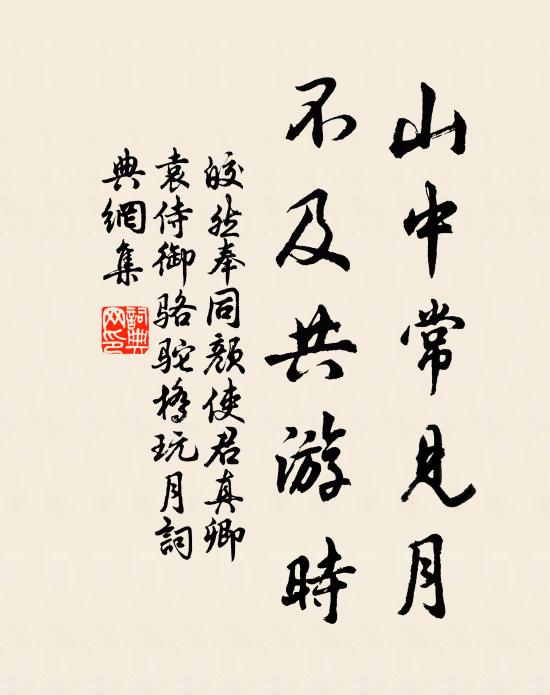 山中常見月
不及共游時
皎然奉同顏使君真卿
袁侍御骆駝橋玩月詞
典網集
詞典网印